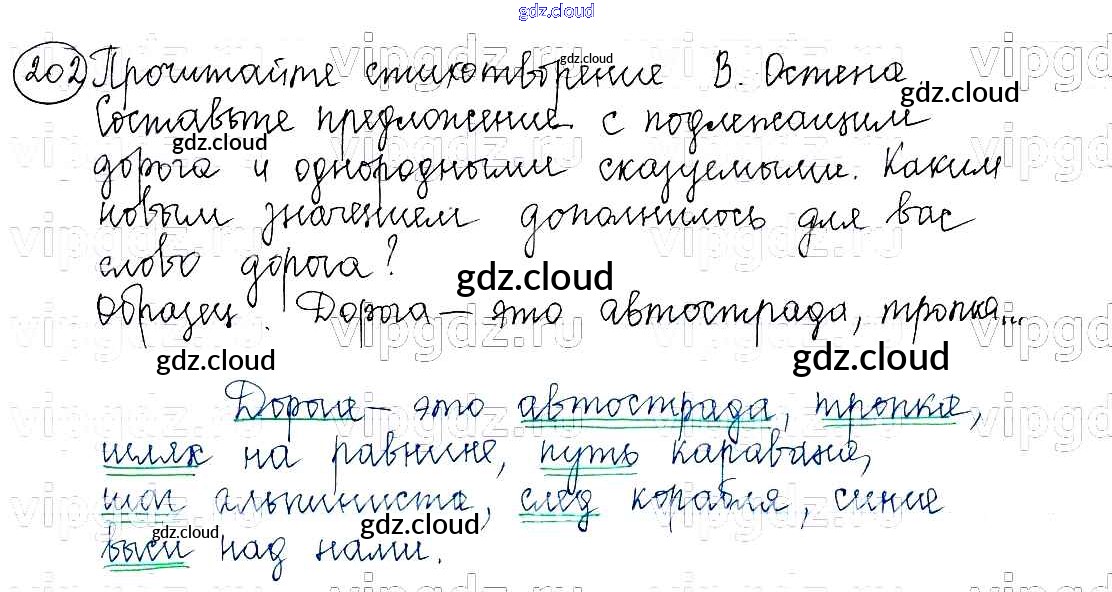 gdz.cloud
202 Прочитайте стихотворение В. Остена.
Составьте предложение с подлежащим
дорога и однородными сказуемыми. Каким
новым значением дополнилось для вас
слово дорога?
Образец. Дорога – это автострада, тропка...
Дорога – это автострада, тропка,
шлях на равнине, путь каравана,
шаг альпиниста, след корабля, синие
выси над нами.
gdz.cloud
gdz.cloud
gdz.cloud
gdz.cloud
gdz.cloud
gdz.cloud
gdz.cloud
gdz.cloud
vipgdz.ru
vipgdz.ru
vipgdz.ru
vipgdz.ru
vipgdz.ru
vipgdz.ru